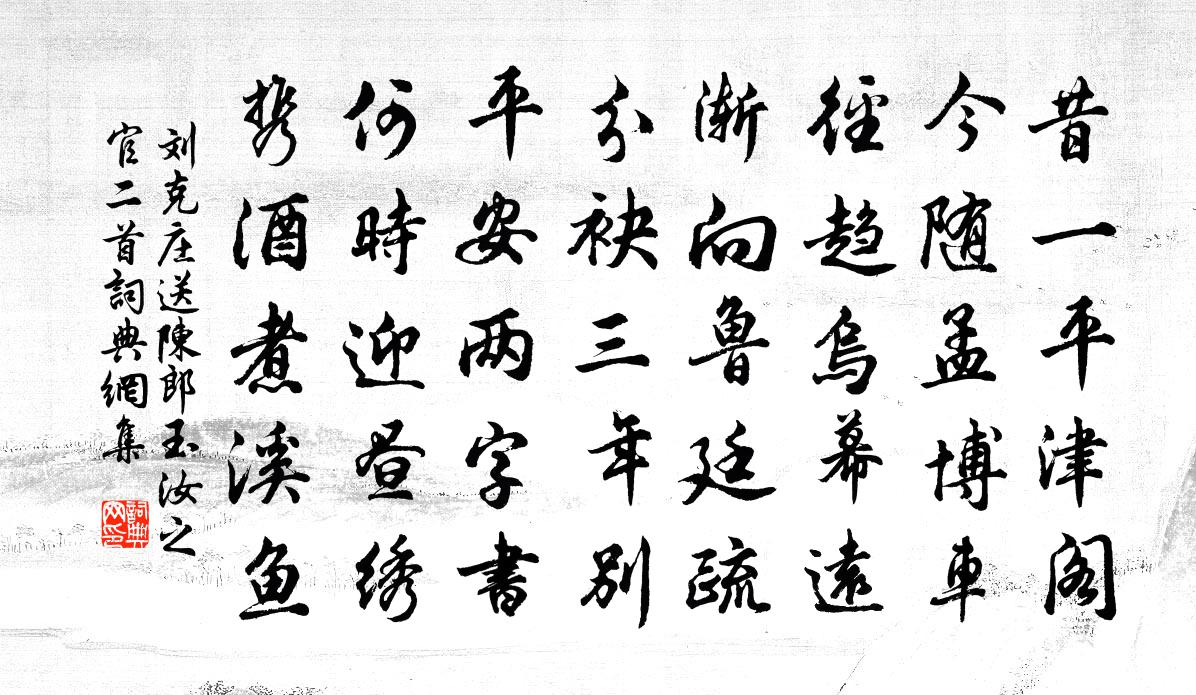 昔一平津阁
今随孟博車
徑趋烏幕遠
渐向魯廷疏
分袂三年别
平安两字書
何時迎昼绣
携酒煮溪魚
刘克庄送陳郎玉汝之
官二首詞典網集
詞典网印